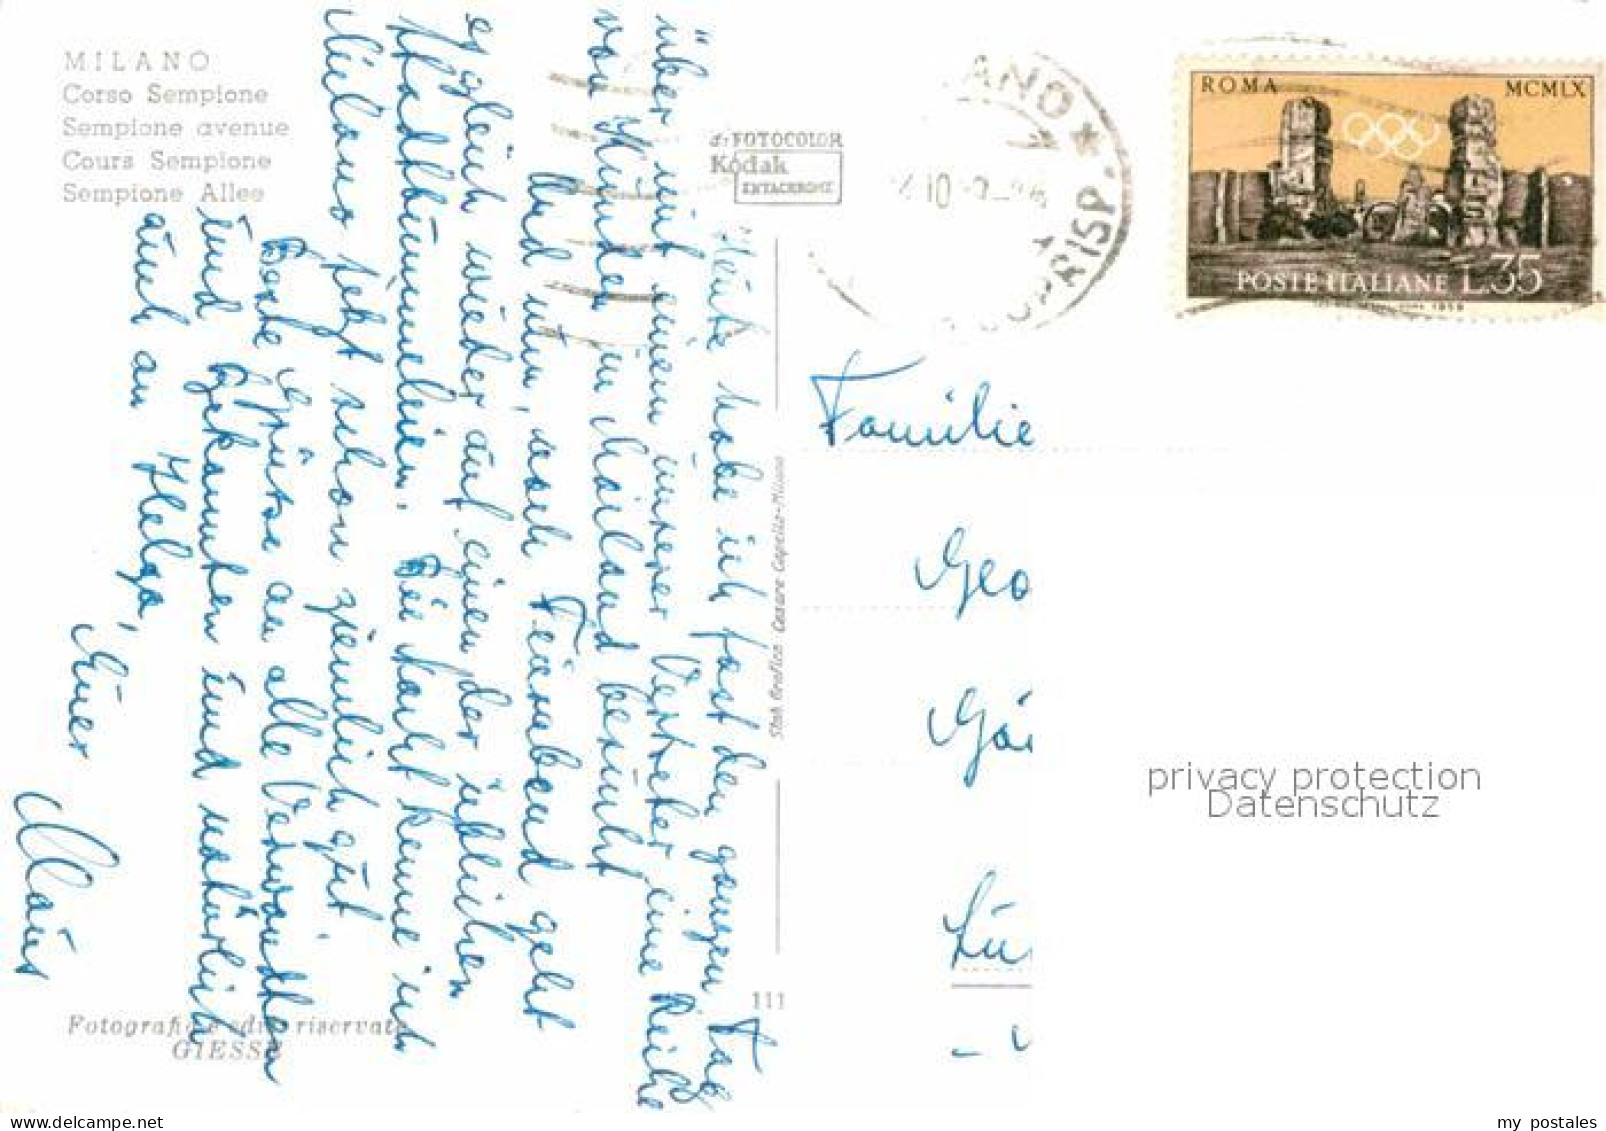 MILANO
Corso Sempione
Sempione avenue
Cours Sempione
Sempione Allee
da FOTOCOLOR
Kódak
EKTACHROME
ROMA MCMLX
POSTE ITALIANE L.35
1959
Heute habe ich fast den ganzen Tag
über mit einem unserer Vertreter eine Reihe
von Kunden in Mailand besucht
Und nun, nach Feierabend geht
es gleich wieder auf einen der üblichen
Stadtbummeleien. Die Stadt kenne ich
Milano jetzt schon ziemlich gut.
Beste Grüsse an alle Verwandten
und Bekannten und natürlich
auch an Helga,
Euer
Klaus
Familie
Geo
Gä
Lü
Stab. Grafico Cesare Capello-Milano
111
Fotografia ed. riservata
GIESSE
privacy protection
Datenschutz
my postales
www.delcampe.net